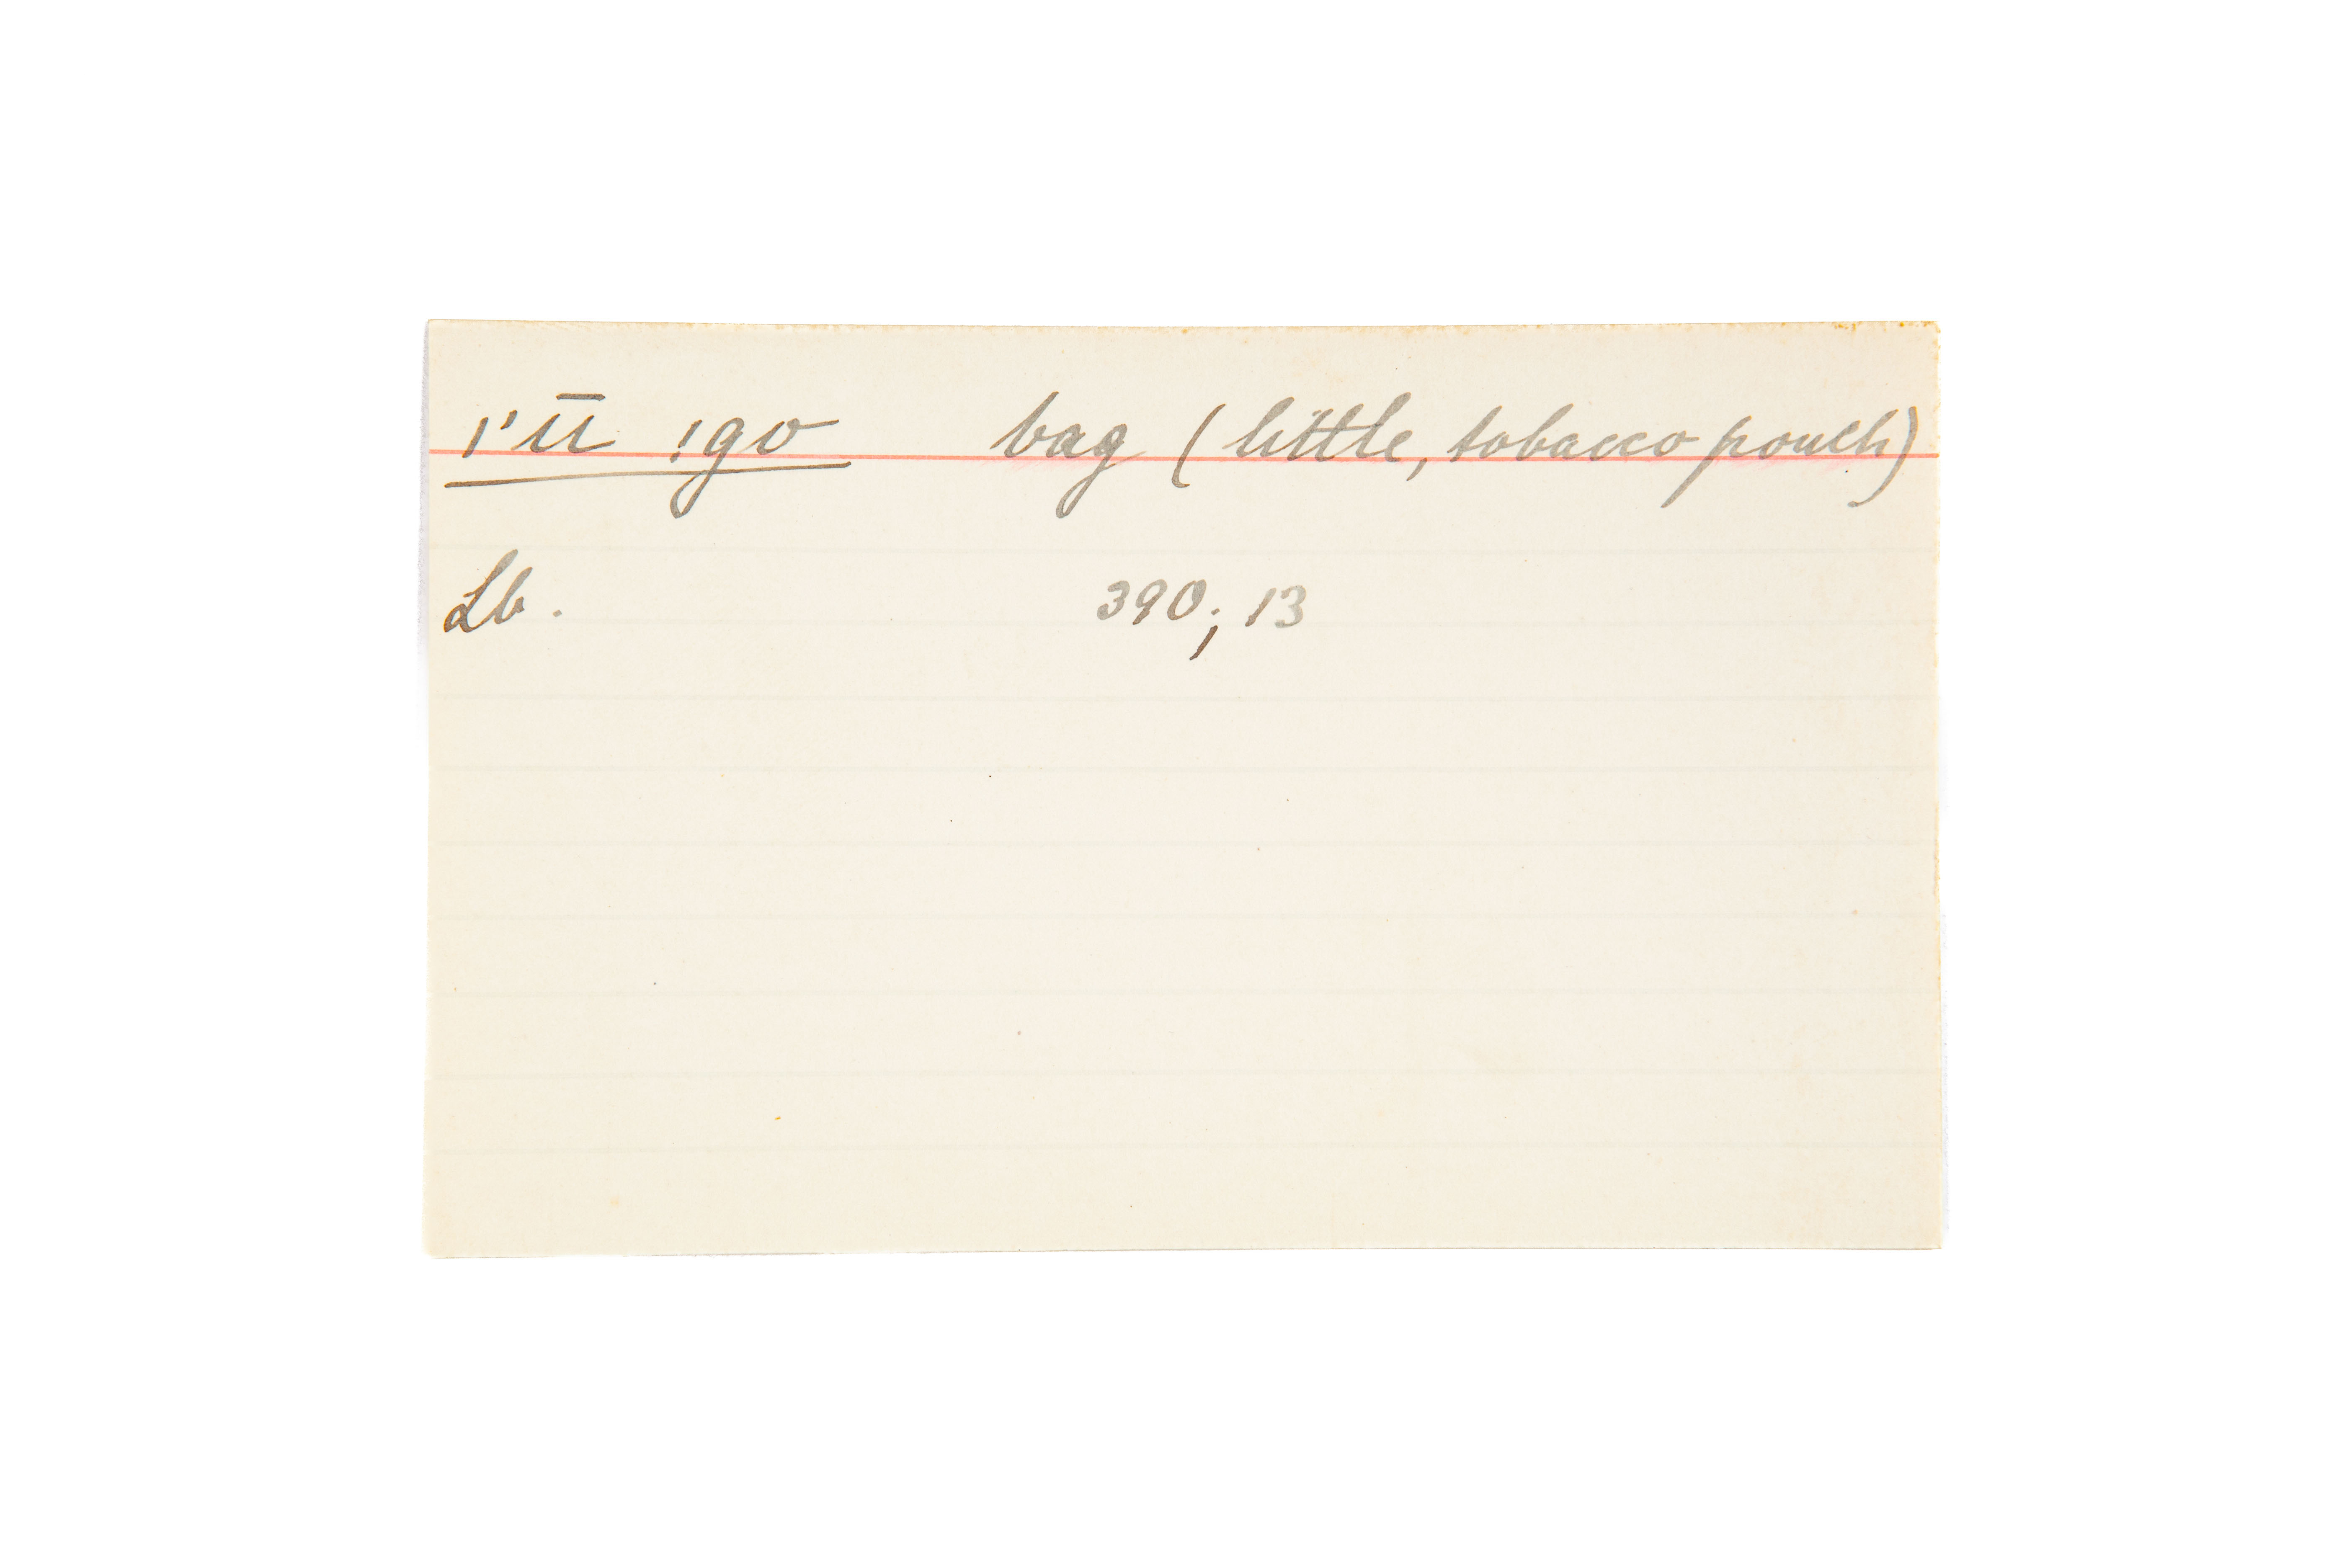 ı'ū !go bag (little, tobacco pouch)
Lb. 390; 13